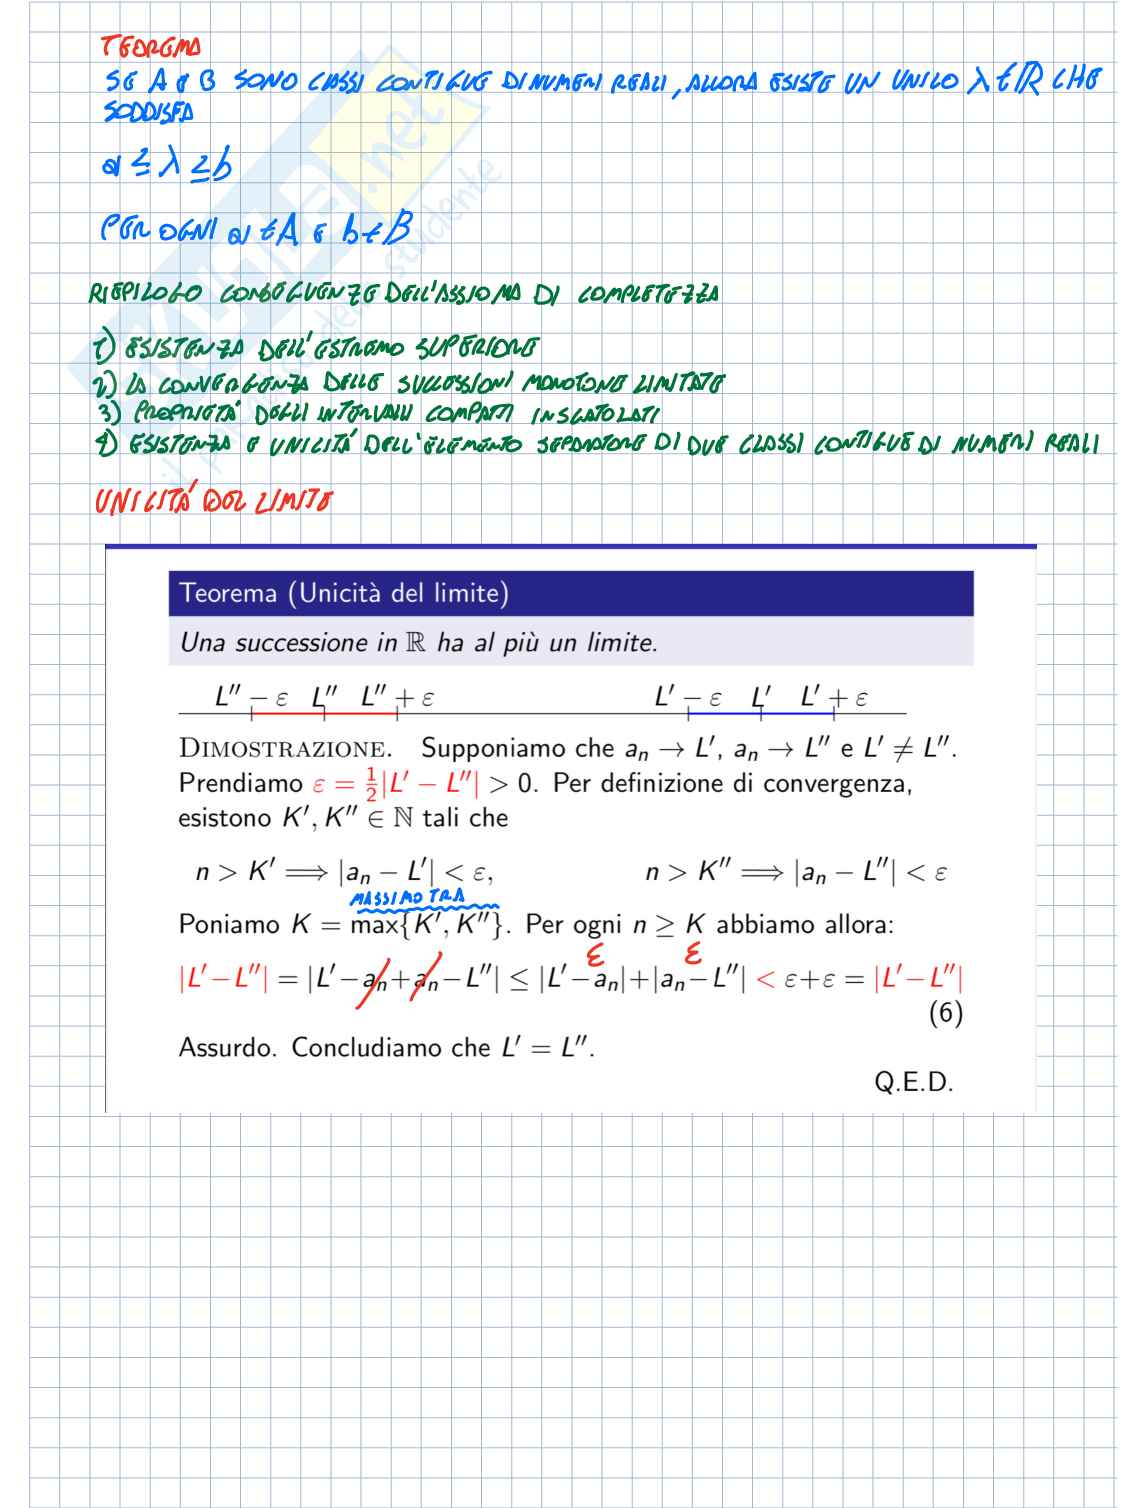 TEOREMA
SE A E B SONO CLASSI CONTIGUE DI NUMERI REALI, ALLORA ESISTE UN UNICO λ ∈ ℝ CHE
SODDISFA
a ≤ λ ≥ b
PER OGNI a ∈ A E b ∈ B
RIEPILOGO CONSEGUENZE DELL'ASSIOMA DI COMPLETEZZA
1) ESISTENZA DELL'ESTREMO SUPERIORE
2) LA CONVERGENZA DELLE SUCCESSIONI MONOTONE LIMITATE
3) PROPRIETÀ DEGLI INTERVALLI COMPATTI INSCATOLATI
4) ESISTENZA E UNICITÀ DELL'ELEMENTO SEPARATORE DI DUE CLASSI CONTIGUE DI NUMERI REALI
UNICITÀ DEL LIMITE
Teorema (Unicità del limite)
Una successione in ℝ ha al più un limite.
L″ − ε L″ L″ + ε L′ − ε L′ L′ + ε
DIMOSTRAZIONE. Supponiamo che aₙ → L′, aₙ → L″ e L′ ≠ L″.
Prendiamo ε = ½|L′ − L″| > 0. Per definizione di convergenza,
esistono K′, K″ ∈ ℕ tali che
n > K′ ⟹ |aₙ − L′| < ε, n > K″ ⟹ |aₙ − L″| < ε
MASSIMO TRA
Poniamo K = max{K′, K″}. Per ogni n ≥ K abbiamo allora:
ε ε
|L′−L″| = |L′−aₙ+aₙ−L″| ≤ |L′−aₙ|+|aₙ−L″| < ε+ε = |L′−L″|
(6)
Assurdo. Concludiamo che L′ = L″.
Q.E.D.